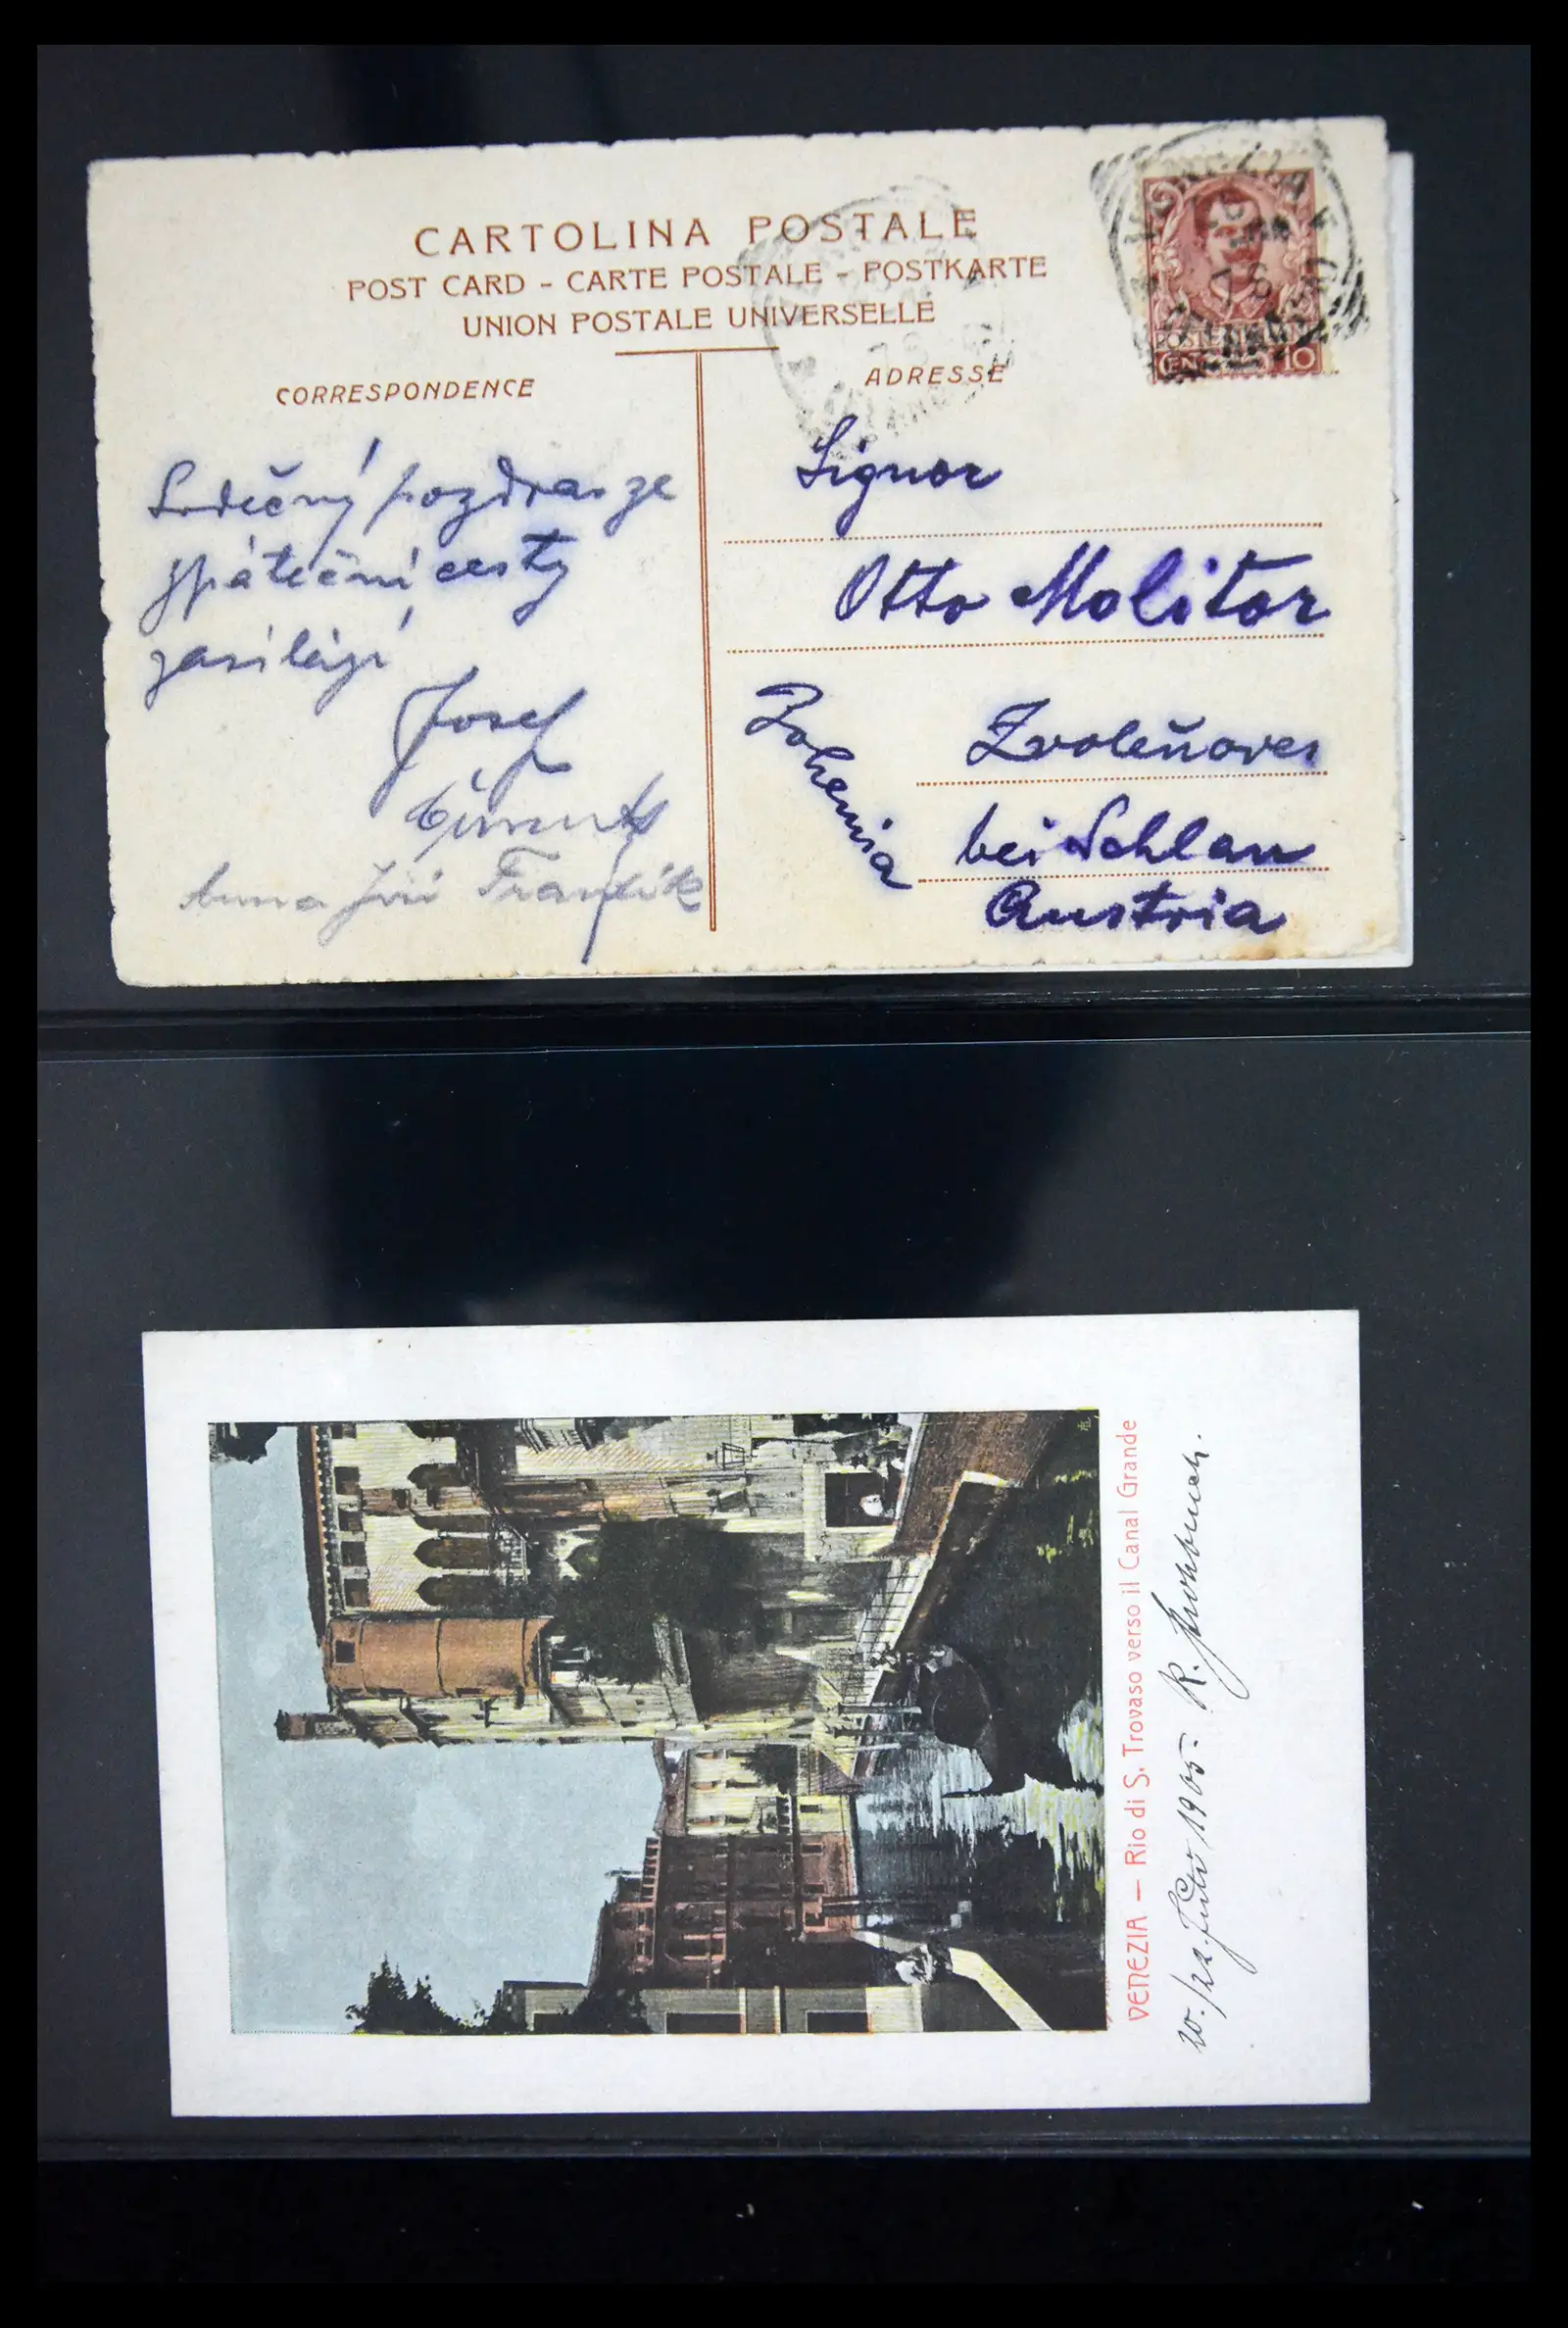 CARTOLINA POSTALE
POST CARD - CARTE POSTALE - POSTKARTE
UNION POSTALE UNIVERSELLE
CORRESPONDENCE
Srdečný pozdrav ze
zpáteční cesty
zasílají
Josef
Anna Jiří František
ADRESSE
POSTE ITALIANE
CENTESIMI 10
Signor
Otto Molitor
Zvoleňoves
bei Schlan
Austria
Bohemia
VENEZIA — Rio di S. Trovaso verso il Canal Grande
20./22. 1905. R.